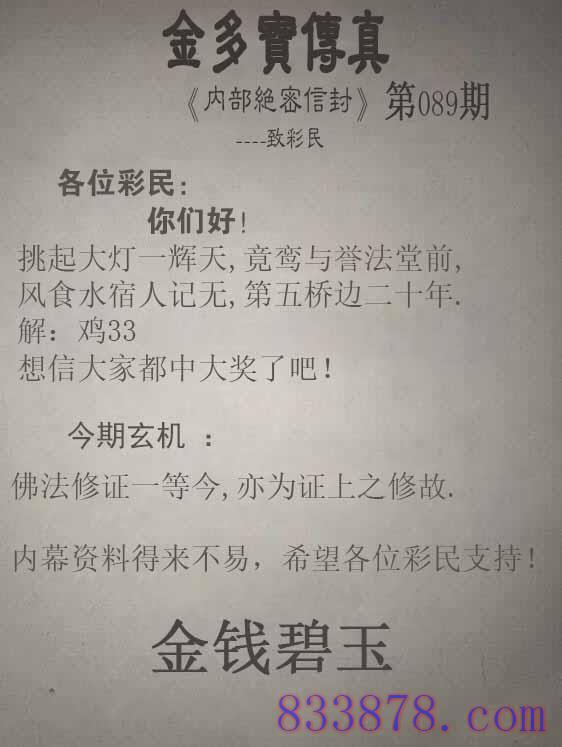 金多寶傳真
《内部絶密信封》第089期
----致彩民
各位彩民:
你们好!
挑起大灯一辉天,竟鸾与誉法堂前,
风食水宿人记无,第五桥边二十年.
解：鸡33
想信大家都中大奖了吧!
今期玄机 ：
佛法修证一等今,亦为证上之修故.
内幕资料得来不易，希望各位彩民支持!
金钱碧玉
833878.com